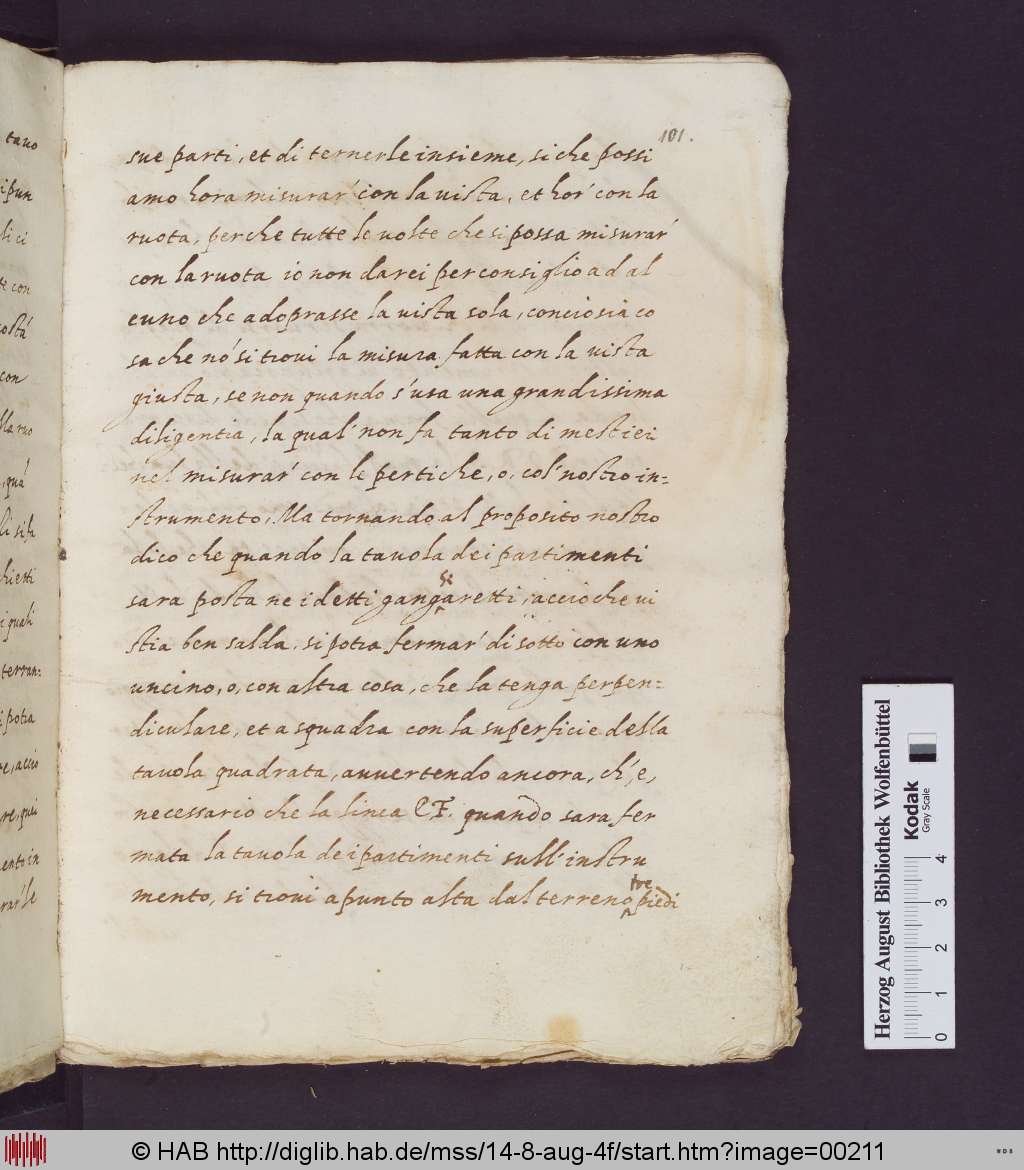 101.
sue parti, et di ternerle insieme, si che possi
amo hora misurar' con la uista, et hor' con la
ruota, perche tutte le uolte che si possa misurar'
con la ruota io non darei per consiglio ad al
cuno che adoprasse la uista sola, conciosia co
sa che nō si troui la misura fatta con la uista
giusta, se non quando s'usa una grandissima
diligentia, la qual' non fa tanto di mestieri
nel misurar' con le pertiche, o, col' nostro in=
strumento. Ma tornando al proposito nostro
dico che quando la tauola dei partimenti
sara posta ne i detti gangaretti, accioche ui
stia ben salda, si potra fermar' di sotto con uno
uncino, o, con altra cosa, che la tenga perpen=
diculare, et a squadra con la superficie della
tauola quadrata, auuertendo ancora, ch', e,
necessario che la linea C F. quando sara fer
mata la tauola dei partimenti sull' instru
mento, si troui apunto alta dal terreno tre piedi
tauo
i pun
li ci
te con
con
qua
si fa
chietti
i quali
terran=
i potra
re, accio
re, qui
ento in
rar' le
Herzog August Bibliothek Wolfenbüttel
Kodak
Gray Scale
0 1 2 3 4
© HAB http://diglib.hab.de/mss/14-8-aug-4f/start.htm?image=00211